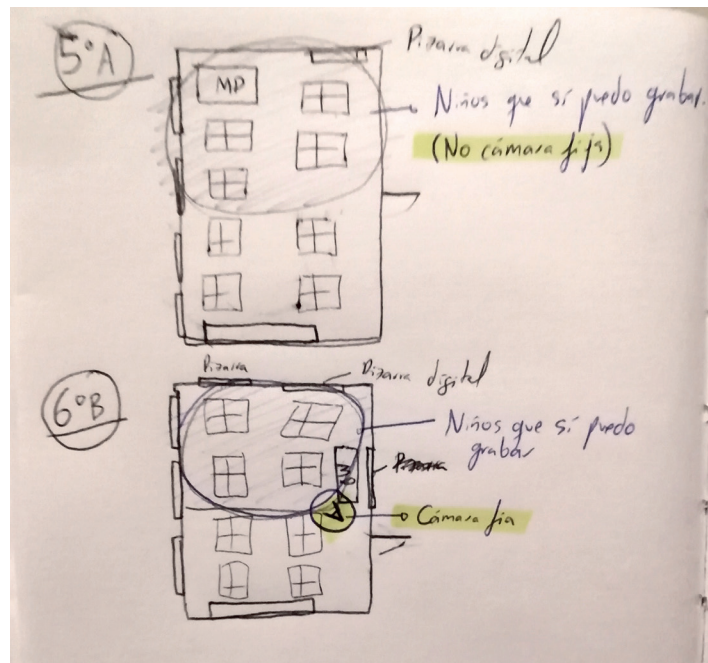 5ºA
Pizarra digital
MP
Niños que sí puedo grabar.
(No cámara fija)
Pizarra
Pizarra digital
6ºB
Niños que sí puedo
grabar
A
Cámara fia